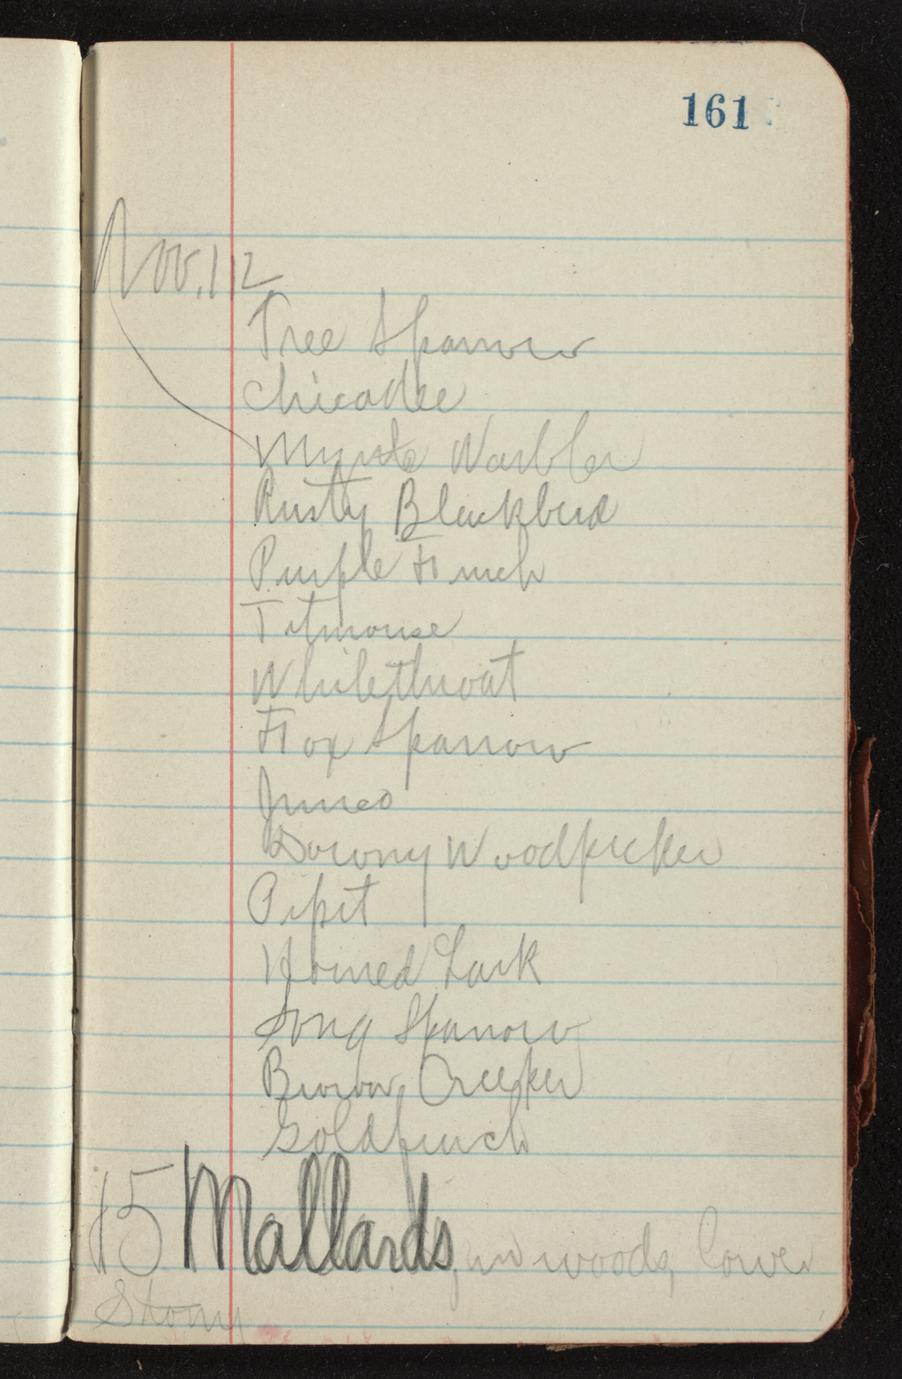 161
Nov. 12
Tree Sparrow
Chicadee
Myrtle Warbler
Rusty Blackbird
Purple Finch
Titmouse
Whitethroat
Fox Sparrow
Junco
Downy Woodpecker
Pipit
Horned Lark
Song Sparrow
Brown Creeper
Goldfinch
15 Mallards, in woods, lower
Stony